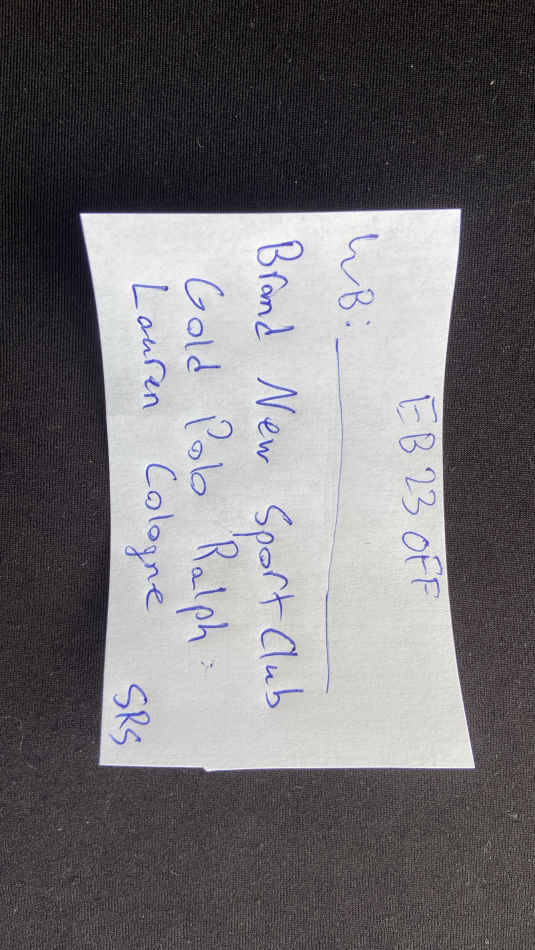 EB 23 OFF
WB:
Brand New Sport Club
Gold Polo Ralph
Lauren Cologne
SRS